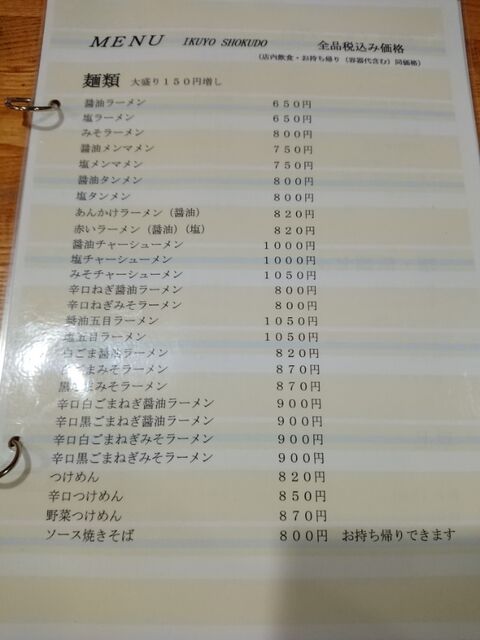 MENU IKUYO SHOKUDO 全品税込み価格
(店内飲食・お持ち帰り(容器代含む)同価格)
麺類 大盛り150円増し
醤油ラーメン 650円
塩ラーメン 650円
みそラーメン 800円
醤油メンマメン 750円
塩メンマメン 750円
醤油タンメン 800円
塩タンメン 800円
あんかけラーメン(醤油) 820円
赤いラーメン(醤油)(塩) 820円
醤油チャーシューメン 1000円
塩チャーシューメン 1000円
みそチャーシューメン 1050円
辛口ねぎ醤油ラーメン 800円
辛口ねぎみそラーメン 800円
醤油五目ラーメン 1050円
塩五目ラーメン 1050円
白ごま醤油ラーメン 820円
白ごまみそラーメン 870円
黒ごまみそラーメン 870円
辛口白ごまねぎ醤油ラーメン 900円
辛口黒ごまねぎ醤油ラーメン 900円
辛口白ごまねぎみそラーメン 900円
辛口黒ごまねぎみそラーメン 900円
つけめん 820円
辛口つけめん 850円
野菜つけめん 870円
ソース焼きそば 800円 お持ち帰りできます